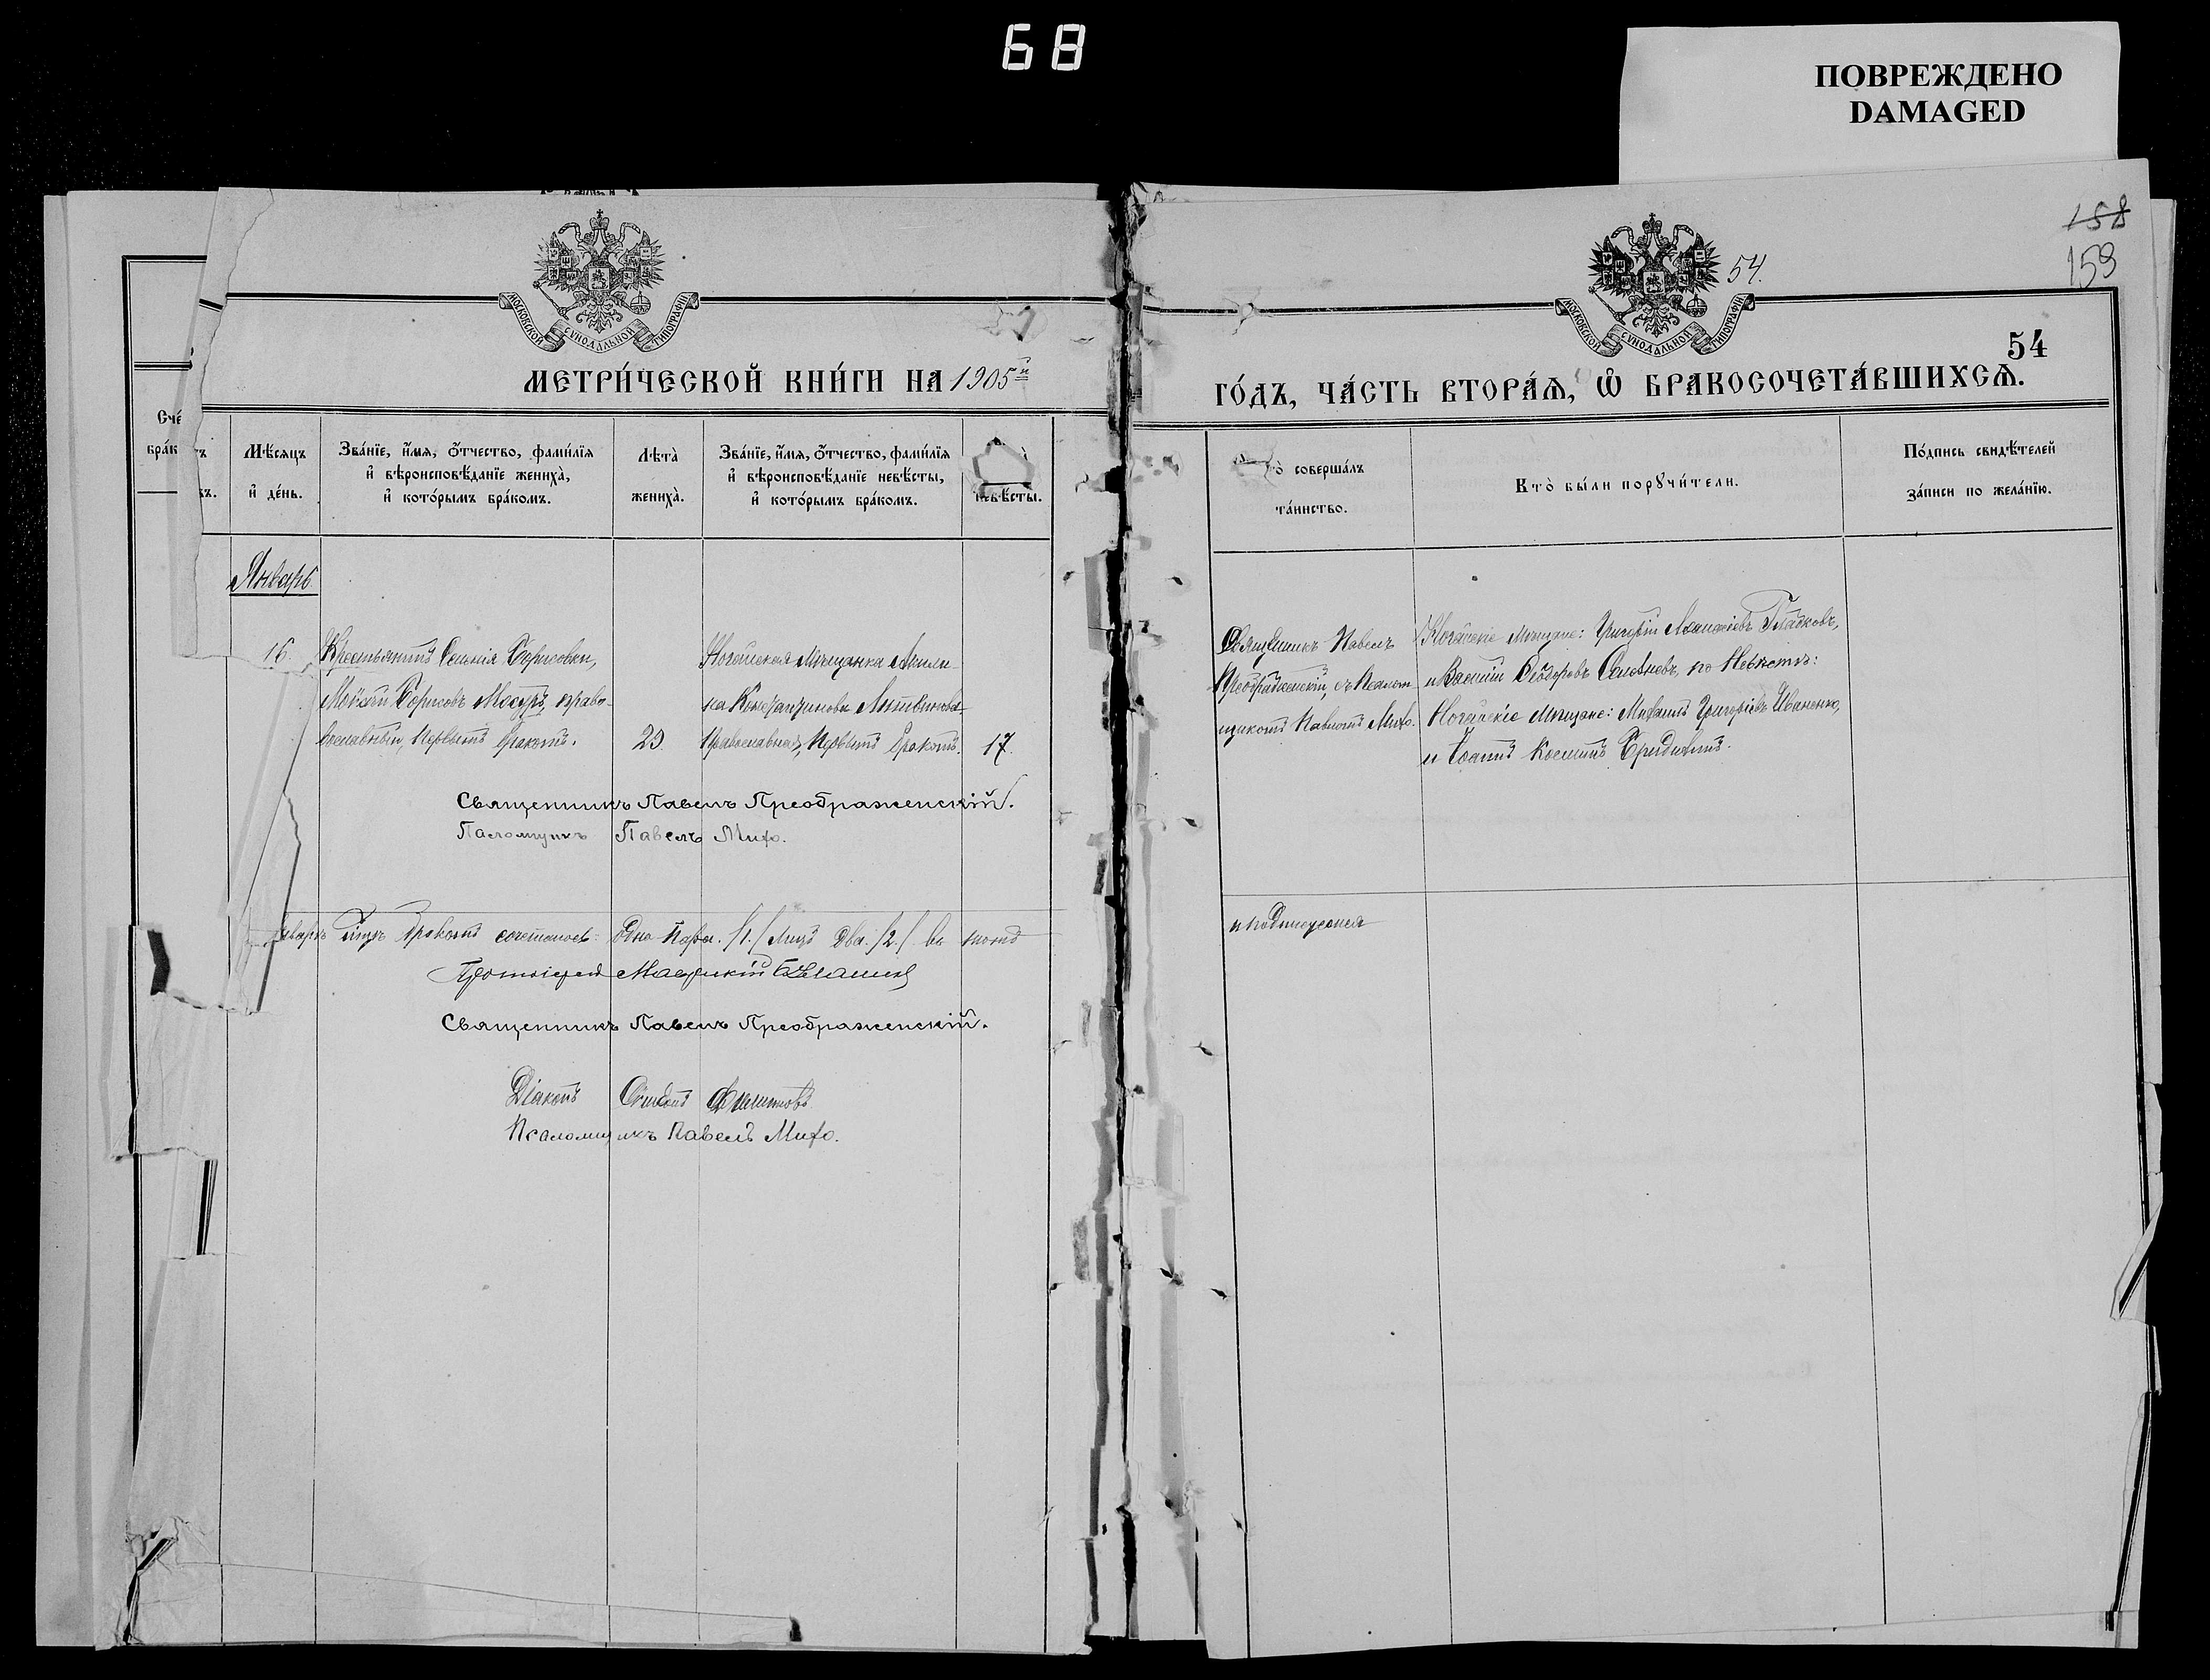 68
ПОВРЕЖДЕНО
DAMAGED
158
159
54.
МОСКОВСКОЙ СѴНОДАЛЬНОЙ ТИПОГРАФІИ
МОСКОВСКОЙ СѴНОДАЛЬНОЙ ТИПОГРАФІИ
54
МЕТРИ́ЧЕСКОЙ КНИ́ГИ НА 1905й
ГО́ДЪ, ЧА́СТЬ ВТОРА́Ѧ, Ѽ БРАКОСОЧЕТА́ВШИХСѦ.
Сче́
бра́к
Мѣ́сяцъ
и҆ де́нь.
Зва́нїе, и҆́мя, ѻ҆́тчество, фами́лїя
и҆ вѣроисповѣ́данїе жениха̀,
и҆ кото́рымъ бра́комъ.
Лѣта̀
жениха̀.
Зва́нїе, и҆́мя, ѻ҆́тчество, фами́лїя
и҆ вѣроисповѣ́данїе невѣ́сты,
и҆ кото́рымъ бра́комъ.
невѣ́сты.
соверша́лъ
та́инство.
Кто̀ бы́ли порꙋчи́тели.
По́дпись свидѣ́телей
за́писи по жела́нїю.
Январь
16.
Крестьянинъ Селенія Борисовки,
Моѵсей Борисовъ Мосуръ, право-
вославный, первымъ бракомъ.
23.
Ногайская мѣщанка Акили-
на Константинова Литвинова
Православная, первымъ бракомъ.
17.
Священникъ Павелъ
Преображенскій, съ Псалом-
щикомъ Павломъ Мифо.
Ногайскіе мѣщане: Григорій Гладковъ,
и Василій Ѳеодоровъ по Невѣстѣ:
Ногайскіе мѣщане: Михаилъ Григорьевъ Иваненко,
и Іоаннъ Косминъ
Священникъ Павелъ Преображенскій.
Псаломщикъ Павелъ Мифо.
бракомъ сочеталось: одна пара. /1./ Лицъ два. /2./ въ томъ
и подписуемся
Протоіерей
Священникъ Павелъ Преображенскій.
Діаконъ Филиповъ
Псаломщикъ Павелъ Мифо.